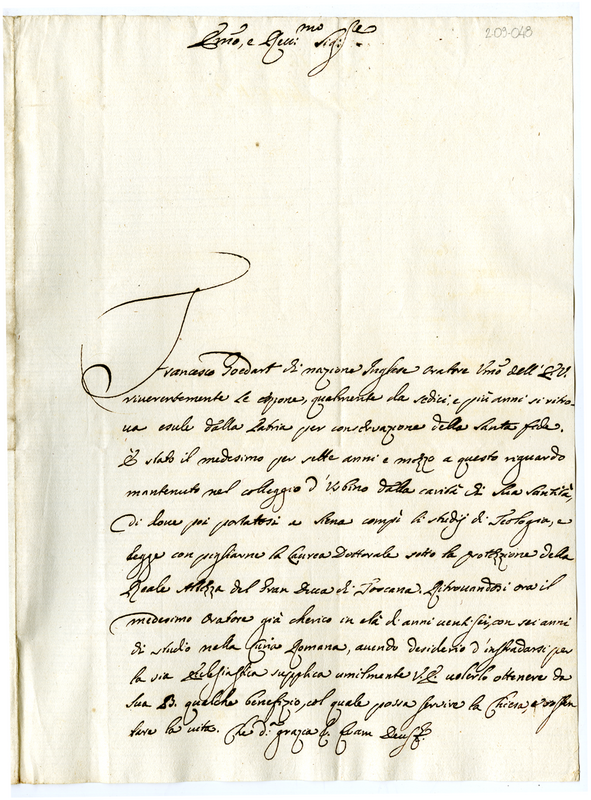 209-048
Em̃o, e Revᵐᵒ Sigʳᵉ
Francesco Goddart di nazione Inglese oratore Umõ dell'E.V.
riverentemente le espone, qualmente da sedici, e più anni si ritro-
va esule dalla Patria per conservazione della Santa fede.
È stato il medesimo per sette anni e mezzo a questo riguardo
mantenuto nel collegio d'Urbino dalla carità di Sua Santità,
di dove poi portatosi a Siena compì li studij di Teologia, e
legge con pigliarne la Laurea Dottorale sotto la protezzione della
Reale Altezza del Gran Duca di Toscana. Ritrovandosi ora il
medesimo Oratore già cherico in età di anni ventisei, con sei anni
di studio nella Curia Romana, avendo desiderio d'instradarsi per
la via Ecclesiastica supplica umilmente V.E. volerlo ottenere da
Sua B. qualche benefizio, col quale possa servire la Chiesa, e sosten
tare la vita. Che d. grazia &. Quam Deus &.